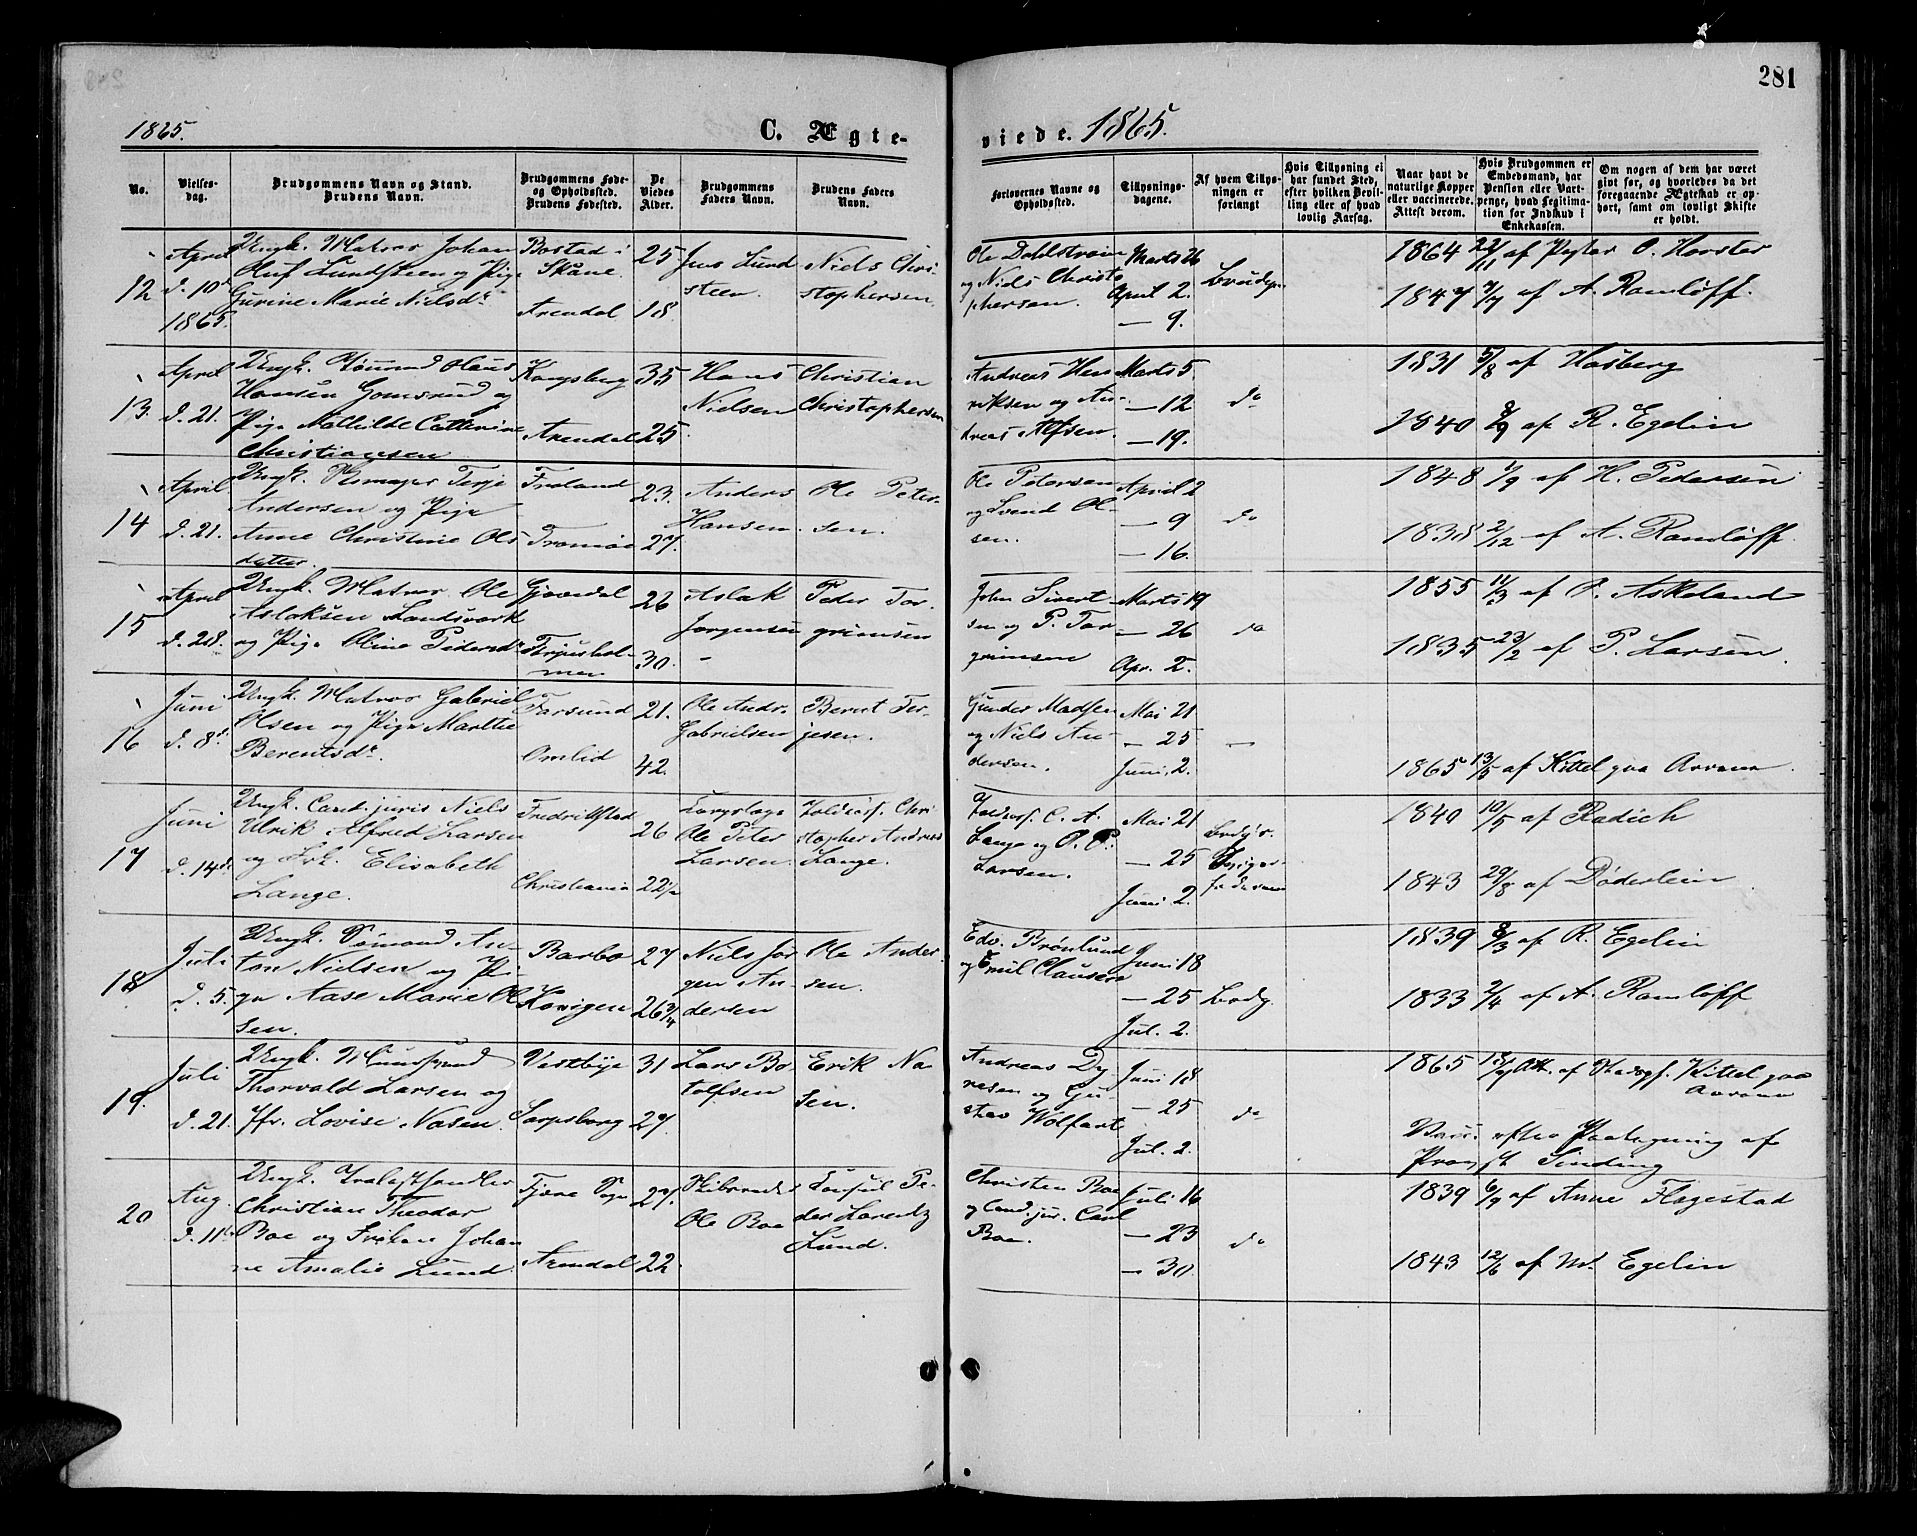 281
1865.
C. Ægte-
viede. 1865.
No.
Vielses-
dag.
Brudgommens Navn og Stand.
Brudens Navn.
Brudgommens Føde-
og Opholdssted.
Brudens Fødested.
De
Viedes
Alder.
Brudgommens
Faders Navn.
Brudens Faders
Navn.
Forlovernes Navne og
Opholdssted.
Tillysnings-
dagene.
Af hvem Tillys-
ningen er
forlangt
Hvis Tillysning ei
har fundet Sted,
efter hvilken Bevil-
ling eller af hvad
lovlig Aarsag.
Naar havt de
naturlige Kopper
eller vaccinerede.
Attest derom.
Hvis Brudgommen er
Embedsmand, har
Pension eller Vart-
penge, hvad Legitima-
tion for Indskud i
Enkekassen.
Om nogen af dem har været
givt før, og hvorledes da det
foregaaende Ægteskab er op-
hørt, samt om lovligt Skifte
er holdt.
12
April
d. 10de
1865.
Ungk. Matros Johan
Oluf Lundsteen og Pige
Gurine Marie Nielsdr.
Bostad i
Skåne.
Arendal
25
18.
Jens Lund
steen.
Niels Chri-
stophersen.
Ole Dahlstrøm
og Niels Christo
phersen.
Marts 26
April 2.
— 9.
Brudgm.
1864 22/11 af Pastor O. Horster
1847 7/7 af A. Ramløff.
13.
April
d. 21.
Ungk. Hans
Hansen Gomsrud og
Pige Mathilde Cathrine
Christiansen
Kongsberg
Arendal
35
25.
Hans
Nielsen
Christian
Christophersen
Andreas Hen
riksen og An-
dreas Alfsen.
Marts 5.
— 12
— 19.
do
1831 5/8 af Hasberg
1840 9/9 af R. Egelin
14
April
d. 21.
Ungk. Terje
Andersen og Pige
Anne Christine Ols
datter.
Froland
Tromøe
23.
27.
Anders
Hansen.
Ole Peter-
sen.
Ole Petersen
og Svend Ol-
sen.
April 2
— 9
— 16.
do
1848 1/9 af H. Pedersen
1838 2/12 af A. Ramløff.
15
April
d. 28.
Ungk. Matros Ole
Aslaksen Landsverk
og Pige Oline Pedersdr
Gjøvedal
Torjushol-
men
26
30.
Aslak
Jørgensen
Peder Tor-
grimsen
John Sivert
sen og P. Tor
grimsen
Marts 19
— 26
Apr. 2.
do
1855 11/3 af O. Askeland
1835 23/2 af P. Larsen.
16
Juni
d. 8de
Ungk. Matros Gabriel
Olsen og Pige Marthe
Berentsdr.
Farsund
Omlid
21.
42.
Ole Andr.
Gabrielsen
Berent Ter-
jesen.
Gunder Madsen
og Niels An-
dersen.
Mai 21
— 25
Juni 2.
—
1865 13/5 af Kittel paa Aavann.
17
Juni
d. 14de
Ungk. Cand. juris Niels
Ulrik Alfred Larsen
og Frk. Elisabeth
Lange.
Fredrikstad
Christiania
26
22 1/2
Ole Peter
Larsen.
Toldkas. Chri
stopher Andreas
Lange.
C. A.
Lange og O. P.
Larsen.
Mai 21
— 25
Juni 2.
1840 10/5 af Radich
1843 29/8 af Døderlein
18
Juli
d. 5.
Ungk. Sømand An-
ton Nielsen og Pi-
ge Aase Marie Ol
sen.
Barbo
Kovigen
27
26 3/4
Niels Jør
gen An-
dersen
Ole Ander-
sen.
Edv. Brønlund
og Emil Clausen
Juni 18
— 25
Jul. 2.
Brudg.
1839 8/3 af R. Egelin
1833 2/4 af A. Ramløff
19.
Juli
d. 21.
Ungk.
Thorvald Larsen og
Jfr. Lovise Nasen.
Vestbye
Sarpsborg
31
27.
Lars Bo
tolfsen
Erik Na
sen.
Andreas Dy
resen og Gu-
stav Wolfart
Juni 18
— 25
Jul. 2.
do
1865 Att. af Kittel paa
Aavann
Vacc. efter Paategning af
Provst Sinding
20
Aug.
d. 11te
Ungk. Trælasthandler
Christian Theodor
Boe og Frøken Johan
ne Amalie Lund.
Tjøre Sogn
Arendal
27.
22.
Skibsreder
Ole Boe
Consul Pe-
der Lorentz
Lund.
Christen Boe
og Cand. jur. Carl
Boe.
Juli 16
— 23
— 30.
do
1839 6/9 af Anne Flagestad
1843 12/6 af M. Egelin